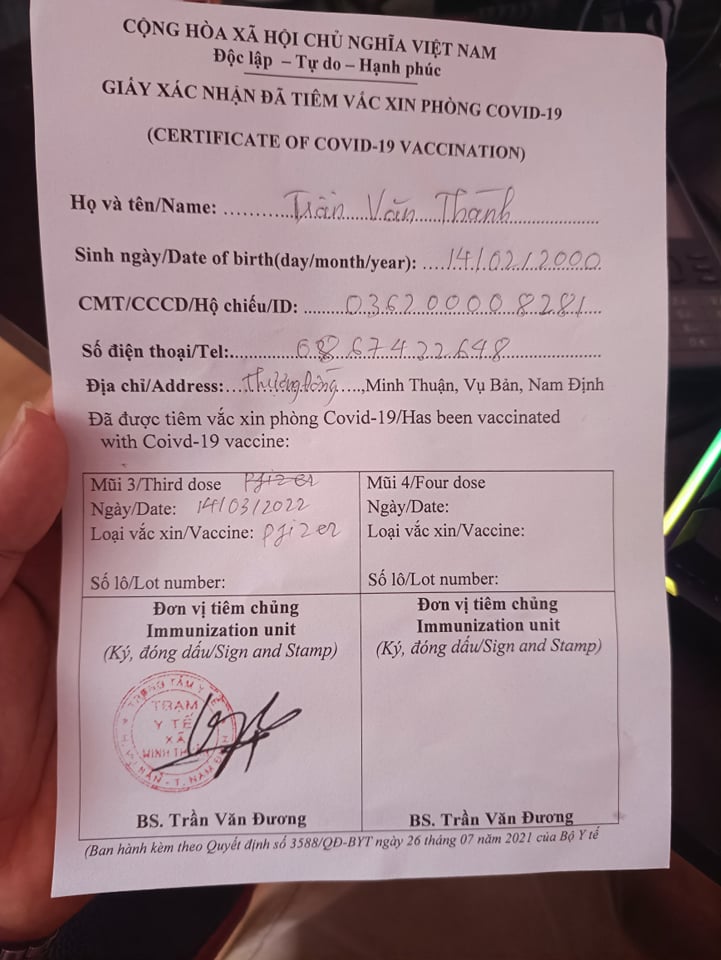 CỘNG HÒA XÃ HỘI CHỦ NGHĨA VIỆT NAM
Độc lập – Tự do – Hạnh phúc
GIẤY XÁC NHẬN ĐÃ TIÊM VẮC XIN PHÒNG COVID-19
(CERTIFICATE OF COVID-19 VACCINATION)
Họ và tên/Name: Trần Văn Thành
Sinh ngày/Date of birth(day/month/year): 14/02/2000
CMT/CCCD/Hộ chiếu/ID: 036200008281
Số điện thoại/Tel: 0867422648
Địa chỉ/Address: Thượng Đồng, Minh Thuận, Vụ Bản, Nam Định
Đã được tiêm vắc xin phòng Covid-19/Has been vaccinated
with Coivd-19 vaccine:
Mũi 3/Third dose pfizer
Ngày/Date: 14/03/2022
Loại vắc xin/Vaccine: pfizer
Số lô/Lot number:
Đơn vị tiêm chủng
Immunization unit
(Ký, đóng dấu/Sign and Stamp)
TRẠM
Y TẾ
XÃ
BS. Trần Văn Đương
Mũi 4/Four dose
Ngày/Date:
Loại vắc xin/Vaccine:
Số lô/Lot number:
Đơn vị tiêm chủng
Immunization unit
(Ký, đóng dấu/Sign and Stamp)
BS. Trần Văn Đương
(Ban hành kèm theo Quyết định số 3588/QĐ-BYT ngày 26 tháng 07 năm 2021 của Bộ Y tế